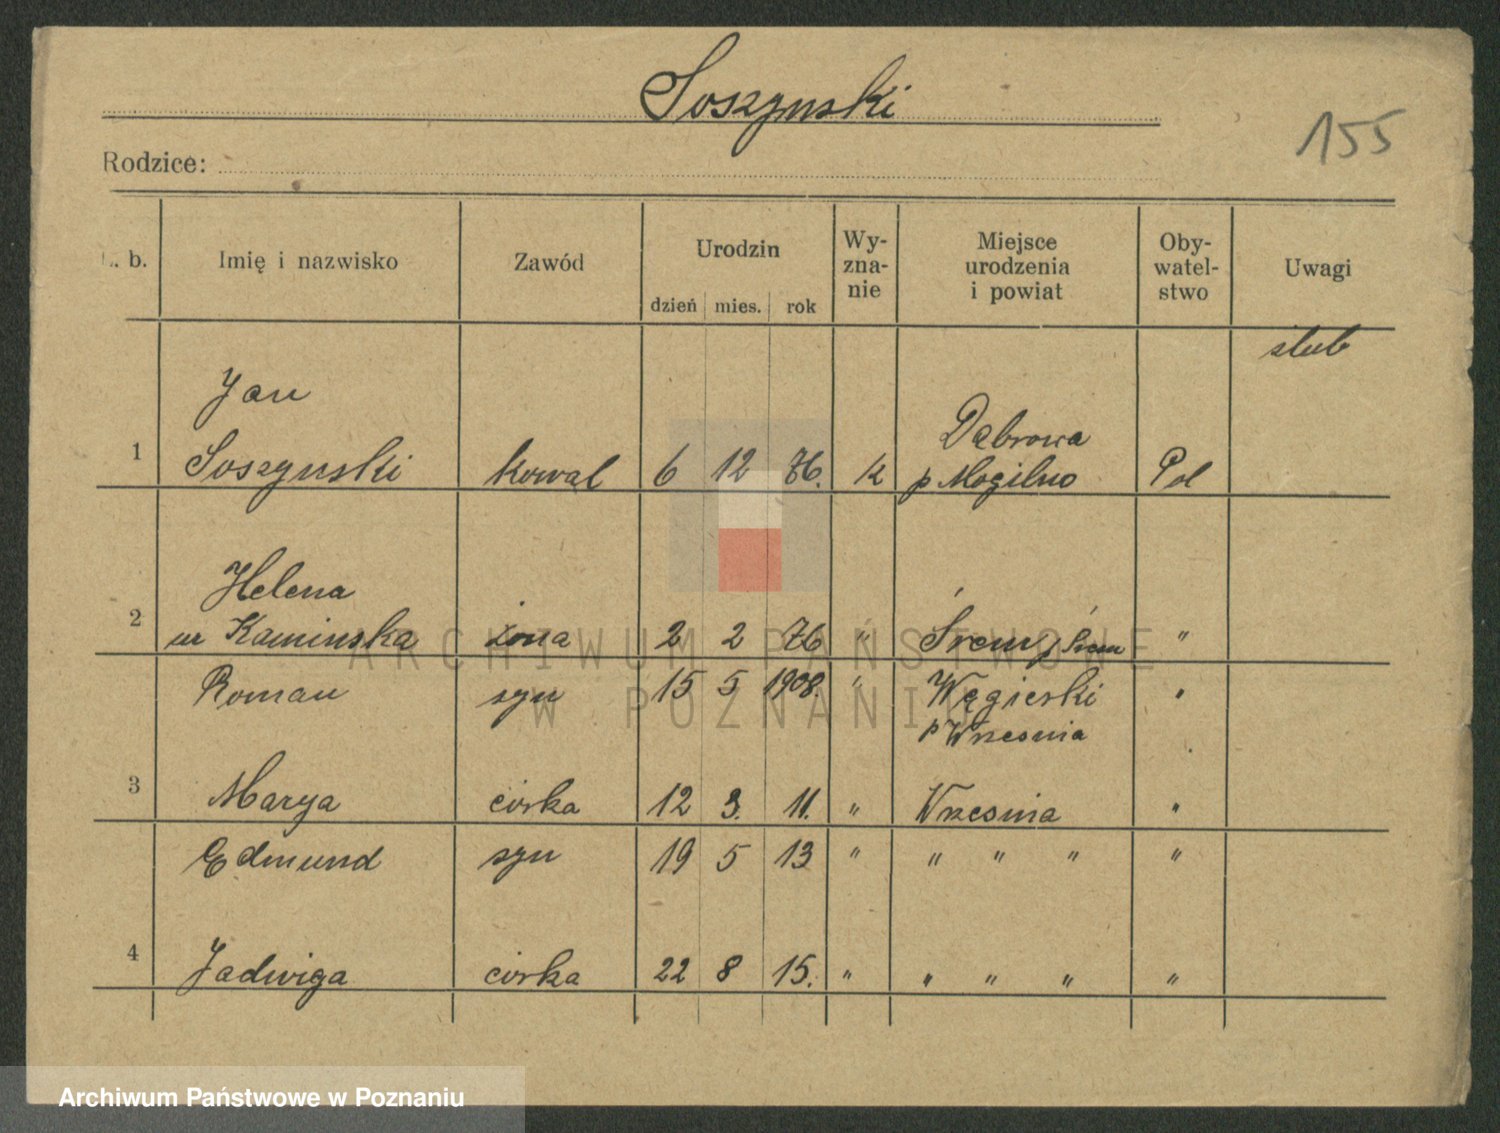 Soszynski
155
Rodzice:
L. b. Imię i nazwisko Zawód Urodzin Wy-zna-nie Miejsce urodzenia i powiat Oby-watel-stwo Uwagi
dzień mies. rok
ślub
Jan
Dąbrowa
1 Soszynski kowal 6 12 76. k p Mogilno Pol
Helena
2 ur Kaminska żona 2 2 76 " Śrem p Śrem "
Roman syn 15 5 1908. " Węgierki "
p Wrzesnia
3 Marya córka 12 3. 11. " Wrzesnia "
Edmund syn 19 5 13 " " " " "
4 Jadwiga córka 22 8 15. " " " " "
ARCHIWUM PAŃSTWOWE
W POZNANIU
Archiwum Państwowe w Poznaniu